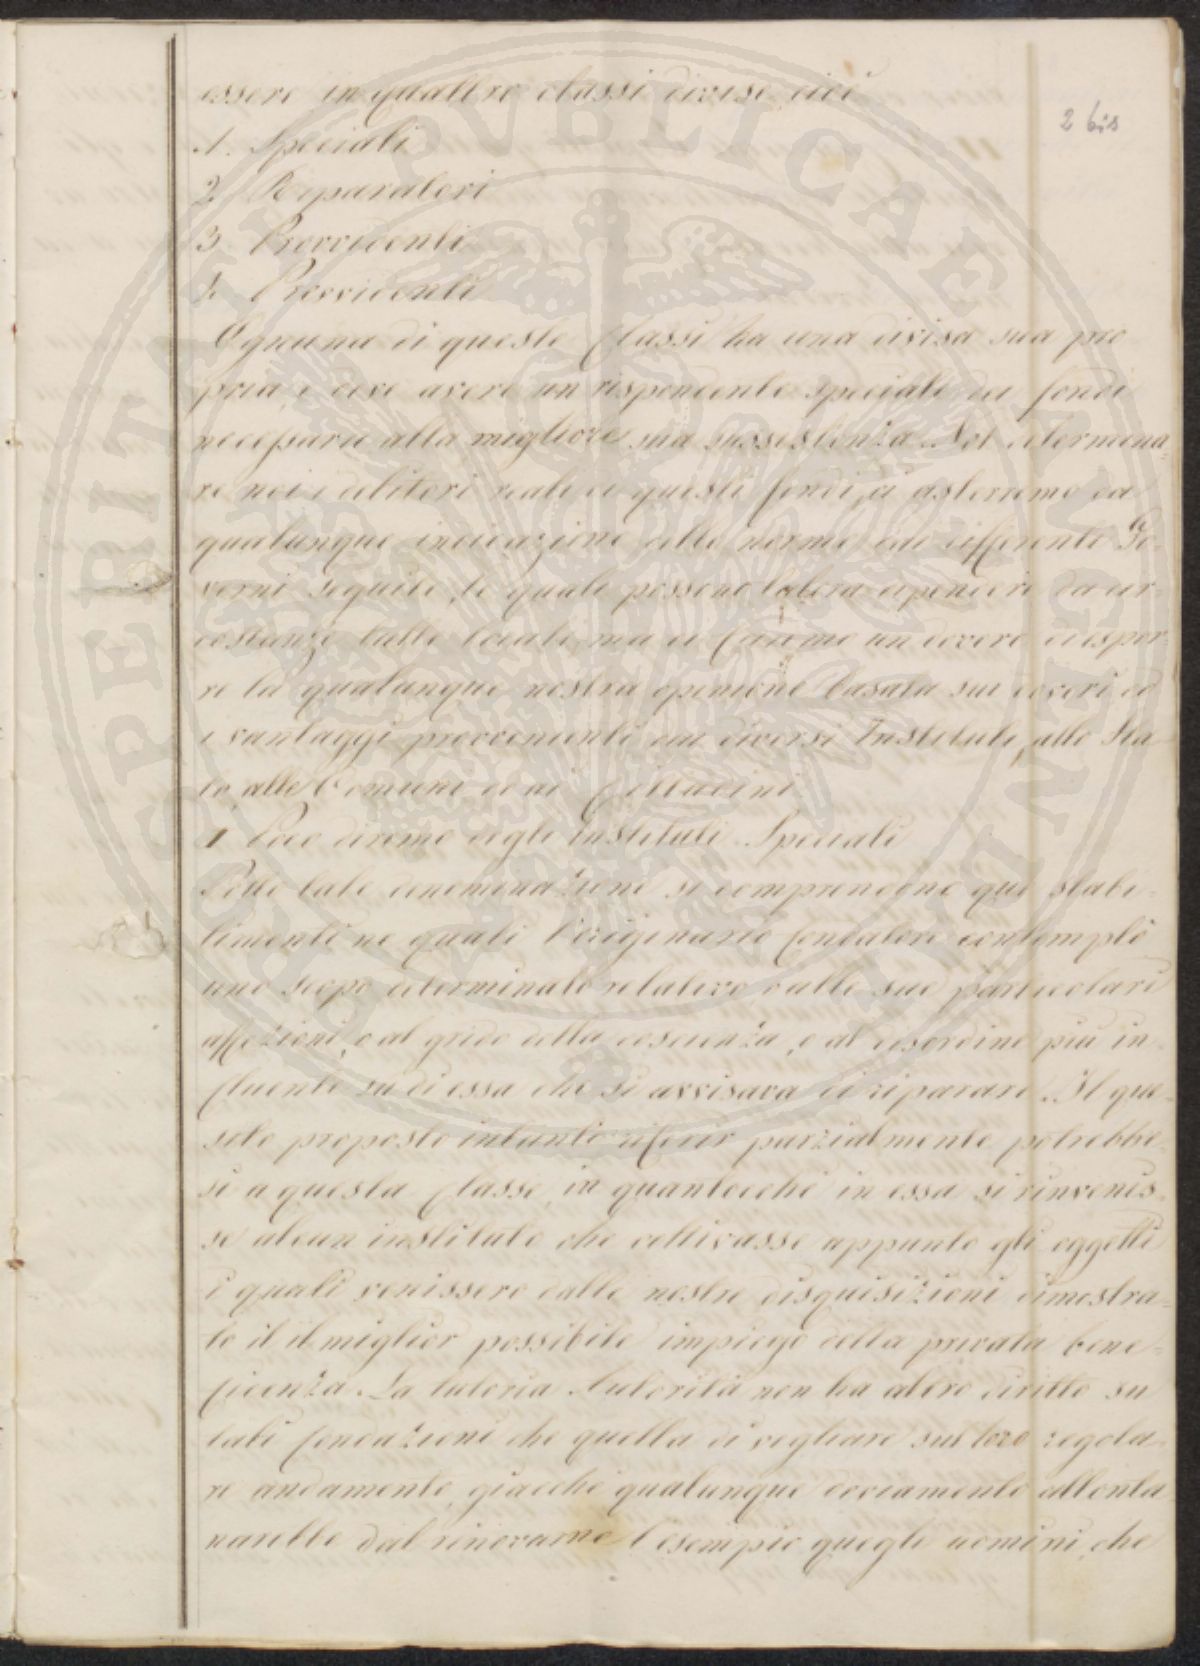 2 bis
essere in quattro classi divisi cioè
1. Speciali
2. Riparatori
3. Provvidenti
4. Previdenti
Ognuna di queste Classi ha una divisa sua pro
pria, e deve avere un rispondente speciale dei fondi
necessarii alla migliore sua sussistenza. Nel determina-
re noi i debitori reali di questi fondi, ci asterremo da
qualunque indicazione delle norme dai differenti Go-
verni seguite, le quali possono talora dipendere da cir-
costanze tutte locali, ma ci faremo un dovere di espor-
re la qualunque nostra opinione basata sui doveri ed
i vantaggi provenienti dai diversi Instituti, allo Sta-
to, alle Comuni ed ai Cittadini.
1 Poco diremo degli Instituti Speciali
Sotto tale denominazione si comprendono que' stabi-
limenti ne' quali l'originario fondatore contemplò
uno scopo determinato relativo o alle sue particolari
affezioni, o al grido della coscienza, o al disordine più in-
fluente su di essa che si avvisava di riparare. Il que-
sito proposto intanto riferir parzialmente potrebbe-
si a questa Classe, in quantocchè in essa si rinvenis-
se alcun instituto che coltivasse appunto gli oggetti
i quali venissero dalle nostre disquisizioni dimostra-
to il il miglior possibile impiego della privata bene-
ficenza. La tutoria Autorità non ha altro diritto su
tali fondazioni che quella di vegliare sul loro regola-
re andamento, giacchè qualunque deviamento allonta
narebbe dal rinovarne l'esempio quegli uomini, che
PROSPERITATI PVBLICAE AVGENDAE